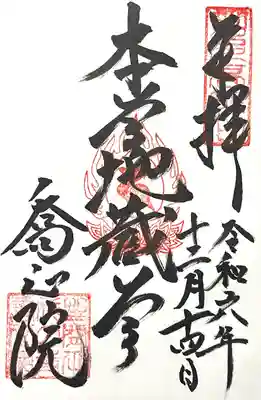 奉拝
令和六年
十二月十四日
本尊地蔵尊
院